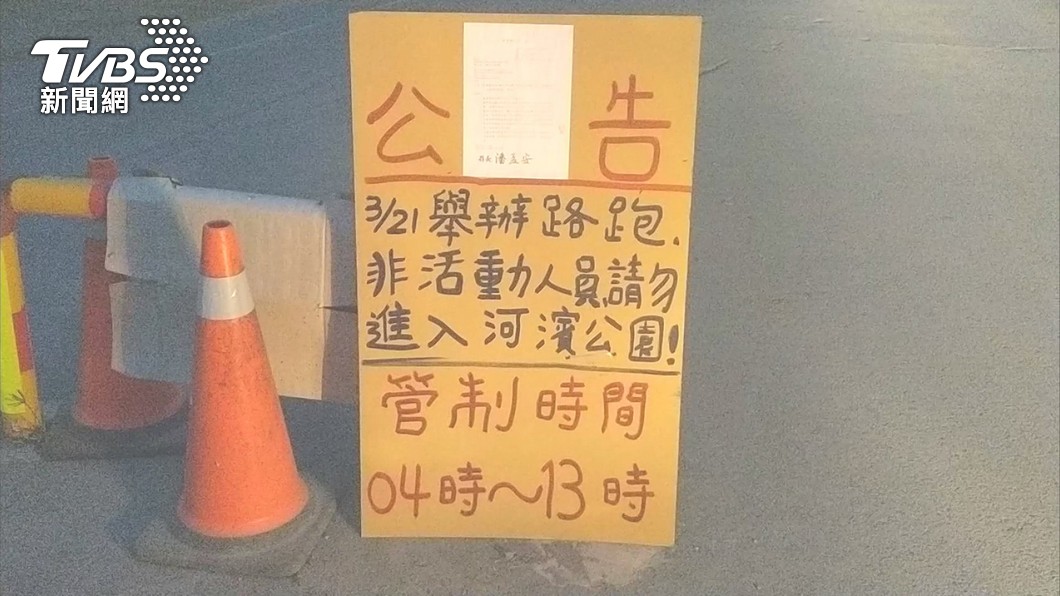 TVBS
新聞網
公告
縣長 潘孟安
3/21舉辦路跑.
非活動人員請勿
進入河濱公園!
管制時間
04時~13時